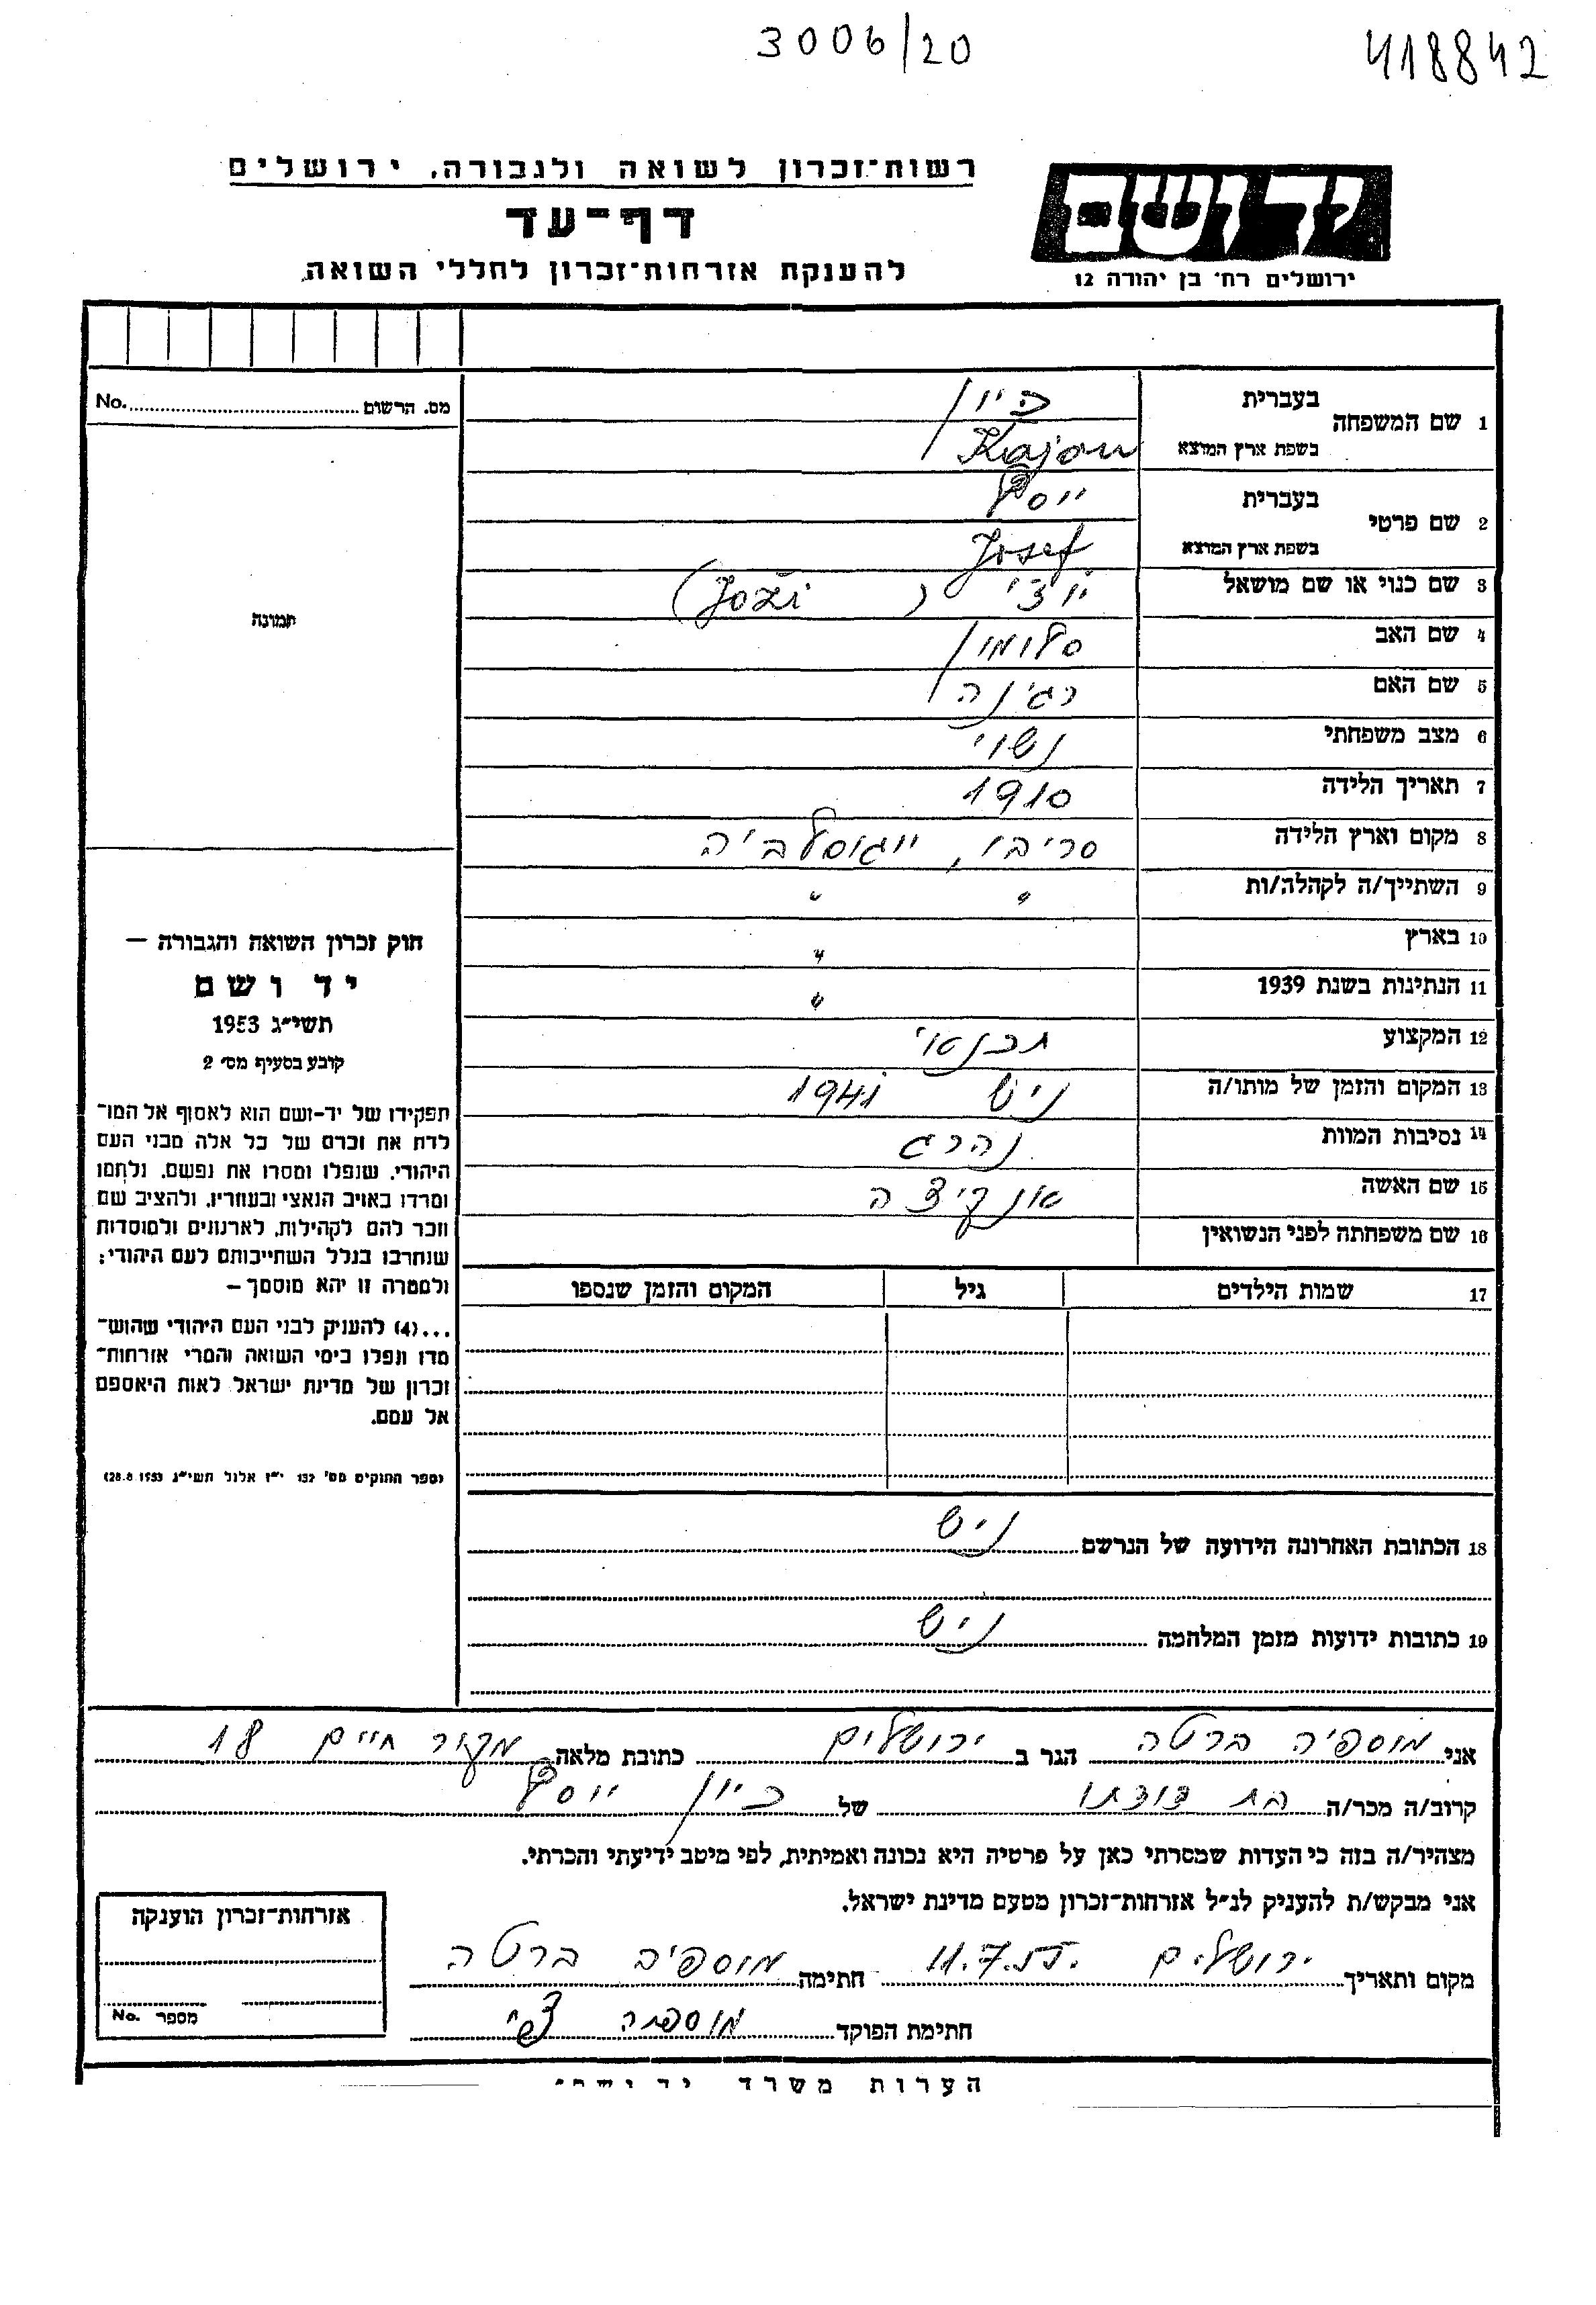 3006/20
418842
רשות־זכרון לשואה ולגבורה, ירושלים
דף־עד
להענקת אזרחות־זכרון לחללי השואה
יד ושם
ירושלים רח' בן יהודה 12
מס. הרשום No.
1 שם המשפחה בעברית כיון
בשפת ארץ המוצא Kajon
2 שם פרטי בעברית יוסף
בשפת ארץ המוצא Josef
3 שם כנוי או שם מושאל יוז'י (Joži)
4 שם האב סלומון
5 שם האם רג'ינה
6 מצב משפחתי נשוי
7 תאריך הלידה 1910
8 מקום וארץ הלידה סריבו, יוגוסלביה
9 השתייך/ה לקהלה/ות " "
10 בארץ "
11 הנתינות בשנת 1939 "
12 המקצוע תכנאי
13 המקום והזמן של מותו/ה ניש 1941
14 נסיבות המוות נהרג
15 שם האשה אנקיצה
16 שם משפחתה לפני הנשואין
17 שמות הילדים גיל המקום והזמן שנספו
18 הכתובת האחרונה הידועה של הנרשם ניש
19 כתובות ידועות מזמן המלחמה ניש
תמונה
חוק זכרון השואה והגבורה —
יד ושם
תשי״ג 1953
קובע בסעיף מס׳ 2
תפקידו של יד-ושם הוא לאסוף אל המו־
לדת את זכרם של כל אלה מבני העם
היהודי, שנפלו ומסרו את נפשם, נלחמו
ומרדו באויב הנאצי ובעוזריו, ולהציב שם
וזכר להם לקהילות, לארגונים ולמוסדות
שנחרבו בגלל השתייכותם לעם היהודי;
ולמטרה זו יהא מוסמך —
...(4) להעניק לבני העם היהודי שהוש־
מדו ונפלו בימי השואה והמרי אזרחות־
זכרון של מדינת ישראל לאות היאספם
אל עמם.
(ספר החוקים מס' 132 י״ז אלול תשי״ג 28.8.1953)
אני מוספיה ברטה הגר ב ירושלים כתובת מלאה מקור חיים 18
קרוב/ה מכר/ה בת דודתו של כיון יוסף
מצהיר/ה בזה כי העדות שמסרתי כאן על פרטיה היא נכונה ואמיתית, לפי מיטב ידיעתי והכרתי.
אני מבקש/ת להעניק לנ״ל אזרחות־זכרון מטעם מדינת ישראל.
מקום ותאריך ירושלים 11.7.55. חתימה מוספיה ברטה
חתימת הפוקד
אזרחות־זכרון הוענקה
מספר No.
הערות משרד יד ושם